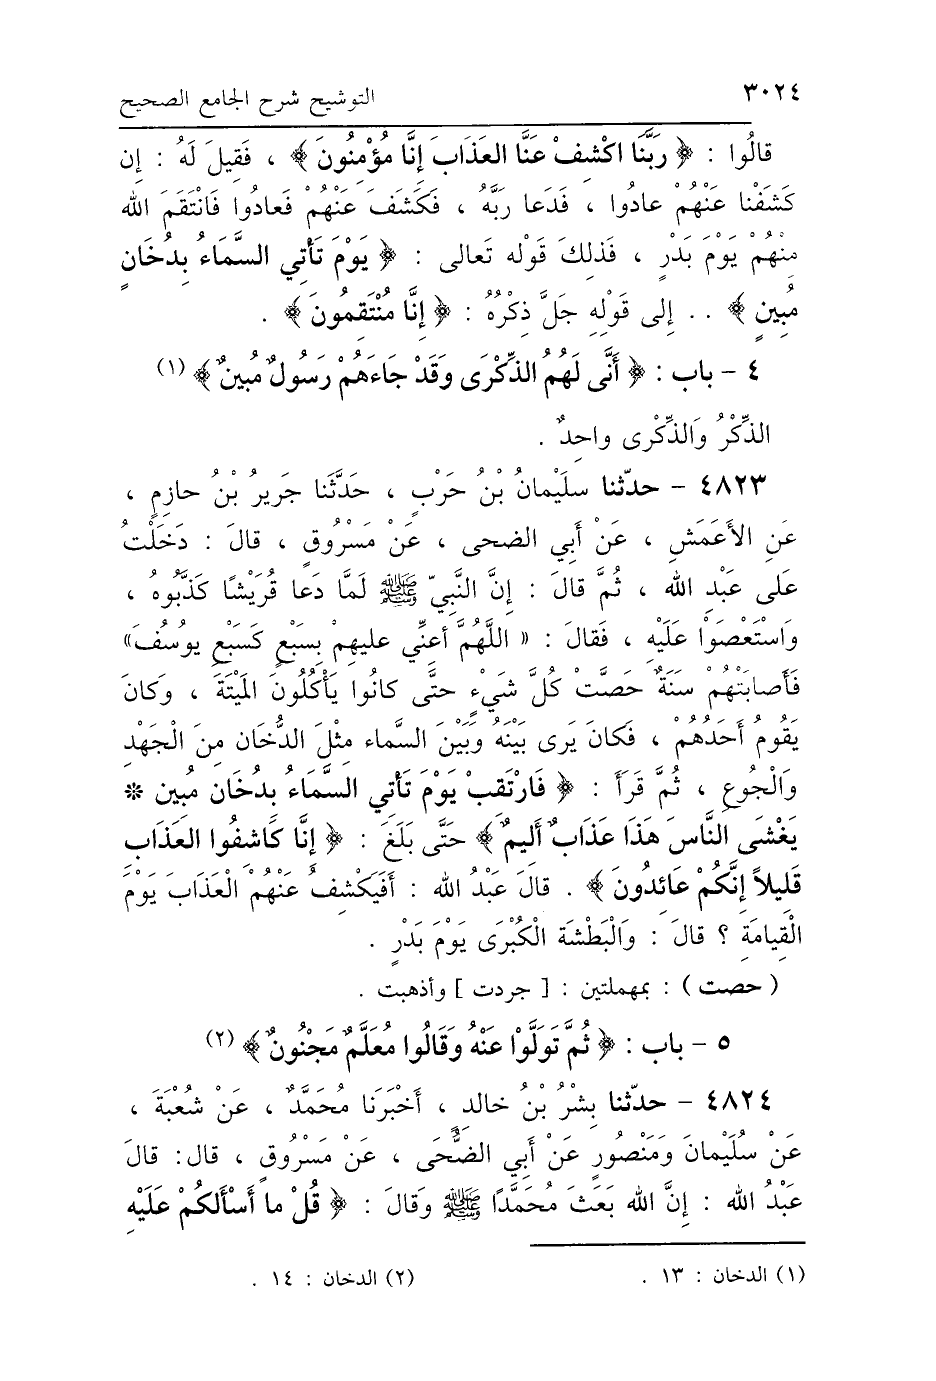 ٣٠٢٤ التوشيح شرح الجامع الصحيح
قالُوا : ﴿ رَبَّنَا اكْشِفْ عَنَّا العَذَابَ إِنَّا مُؤْمِنُونَ ﴾ ، فَقِيلَ لَهُ : إِن
كَشَفْنا عَنْهُمْ عادُوا ، فَدَعا رَبَّهُ ، فَكَشَفَ عَنْهُمْ فَعادُوا فَانْتَقَمَ الله
مِنهُمْ يَوْمَ بَدْرٍ ، فَذلِكَ قَوْله تَعالى : ﴿ يَوْمَ تَأْتِي السَّمَاءُ بِدُخَانٍ
مُبِينٍ ﴾ .. إِلى قَوْلِهِ جَلَّ ذِكْرُهُ : ﴿ إِنَّا مُنْتَقِمُونَ ﴾ .
٤ - باب : ﴿ أَنَّى لَهُمُ الذِّكْرَى وَقَدْ جَاءَهُمْ رَسُولٌ مُبِينٌ ﴾ (١)
الذِّكْرُ وَالذِّكْرى واحِدٌ .
٤٨٢٣ - حدّثنا سلَيْمانُ بْنُ حَرْبٍ ، حَدَّثَنا جَرِيرُ بْنُ حازِمٍ ،
عَنِ الأَعَمَشِ ، عَنْ أَبِي الضحى ، عَنْ مَسْرُوقٍ ، قالَ : دَخَلْتُ
عَلى عَبْدِ الله ، ثُمَّ قالَ : إِنَّ النَّبِيّ ﷺ لَمَّا دَعا قُرَيْشًا كَذَّبُوهُ ،
وَاسْتَعْصَوْا عَلَيْهِ ، فَقالَ : « اللَّهُمَّ أَعِنِّي عليهِمْ بِسَبْعٍ كَسَبْعِ يوُسُفَ»
فَأَصابَتْهُمْ سَنَةٌ حَصَّتْ كُلَّ شَيْءٍ حتَّى كانُوا يَأْكُلُونَ المَيْتَةَ ، وَكانَ
يَقُومُ أَحَدُهُمْ ، فَكانَ يَرى بَيْنَهُ وَبَيْنَ السَّماءِ مِثْلَ الدُّخَانِ مِنَ الْجَهْدِ
وَالْجُوعِ ، ثُمَّ قَرَأَ : ﴿ فَارْتَقِبْ يَوْمَ تَأْتِي السَّمَاءُ بِدُخَانٍ مُبِينٍ *
يَغْشَى النَّاسَ هَذَا عَذَابٌ أَلِيمٌ ﴾ حَتَّى بَلَغَ : ﴿ إِنَّا كَاشِفُوا العَذَابَ
قَلِيلاً إِنَّكُمْ عَائِدُونَ ﴾ . قالَ عَبْدُ الله : أَفَيَكْشِفُ عَنْهُمُ الْعَذَابَ يَوْمَ
الْقِيامَةِ ؟ قالَ : وَالْبَطْشَة الْكُبْرَى يَوْمَ بَدْرٍ .
( حصت ) : بمهملتين : [ جردت ] وأذهبت .
٥ - باب : ﴿ ثُمَّ تَوَلَّوْا عَنْهُ وَقَالُوا مُعَلَّمٌ مَجْنُونٌ ﴾ (٢)
٤٨٢٤ - حدّثنا بِشْرُ بْنُ خالد ، أَخْبَرَنَا مُحَمَّدٌ ، عَنْ شُعْبَةَ ،
عَنْ سُلَيْمانَ وَمَنْصُورٍ عَنْ أَبِي الضُّحَى ، عَنْ مَسْرُوقٍ ، قال: قالَ
عَبْدُ الله : إِنَّ الله بَعَثَ مُحَمَّدًا ﷺ وَقَالَ : ﴿ قُلْ ما أَسْأَلُكُمْ عَلَيْهِ
(١) الدخان : ١٣ . (٢) الدخان : ١٤ .